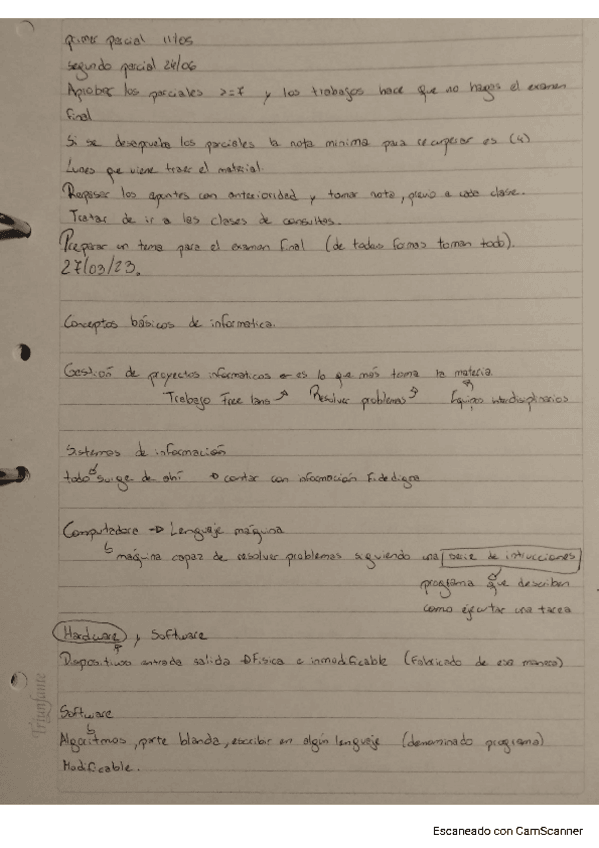 primer parcial 11/05
segundo parcial 24/06
Aprobar los parciales >=7 y los trabajos hace que no hagas el examen
final
Si se desaprueba los parciales la nota minima para recuperar es (4)
Lunes que viene traer el material
Repasar los apuntes con anterioridad y tomar nota, previo a cada clase.
Tratar de ir a las clases de consultas.
Preparar un tema para el examen final (de todas formas toman todo).
27/03/23.
Conceptos básicos de informatica.
Gestión de proyectos informaticos es lo que más toma la materia.
Trabajo Free lans Resolver problemas Equipos interdisiplinarios
Sistemas de información
todo surge de ahí → contar con información fidedigna
Computadora → Lenguaje máquina
máquina capaz de resolver problemas siguiendo una serie de intrucciones
programa que describen
como ejecutar una tarea
Hardware y Software
Dispositivos entrada salida → Física e inmodificable (Fabricado de esa manera)
Software
Algoritmos, parte blanda, escribir en algún lenguaje (denominado programa)
Modificable.
Triunfante
Escaneado con CamScanner